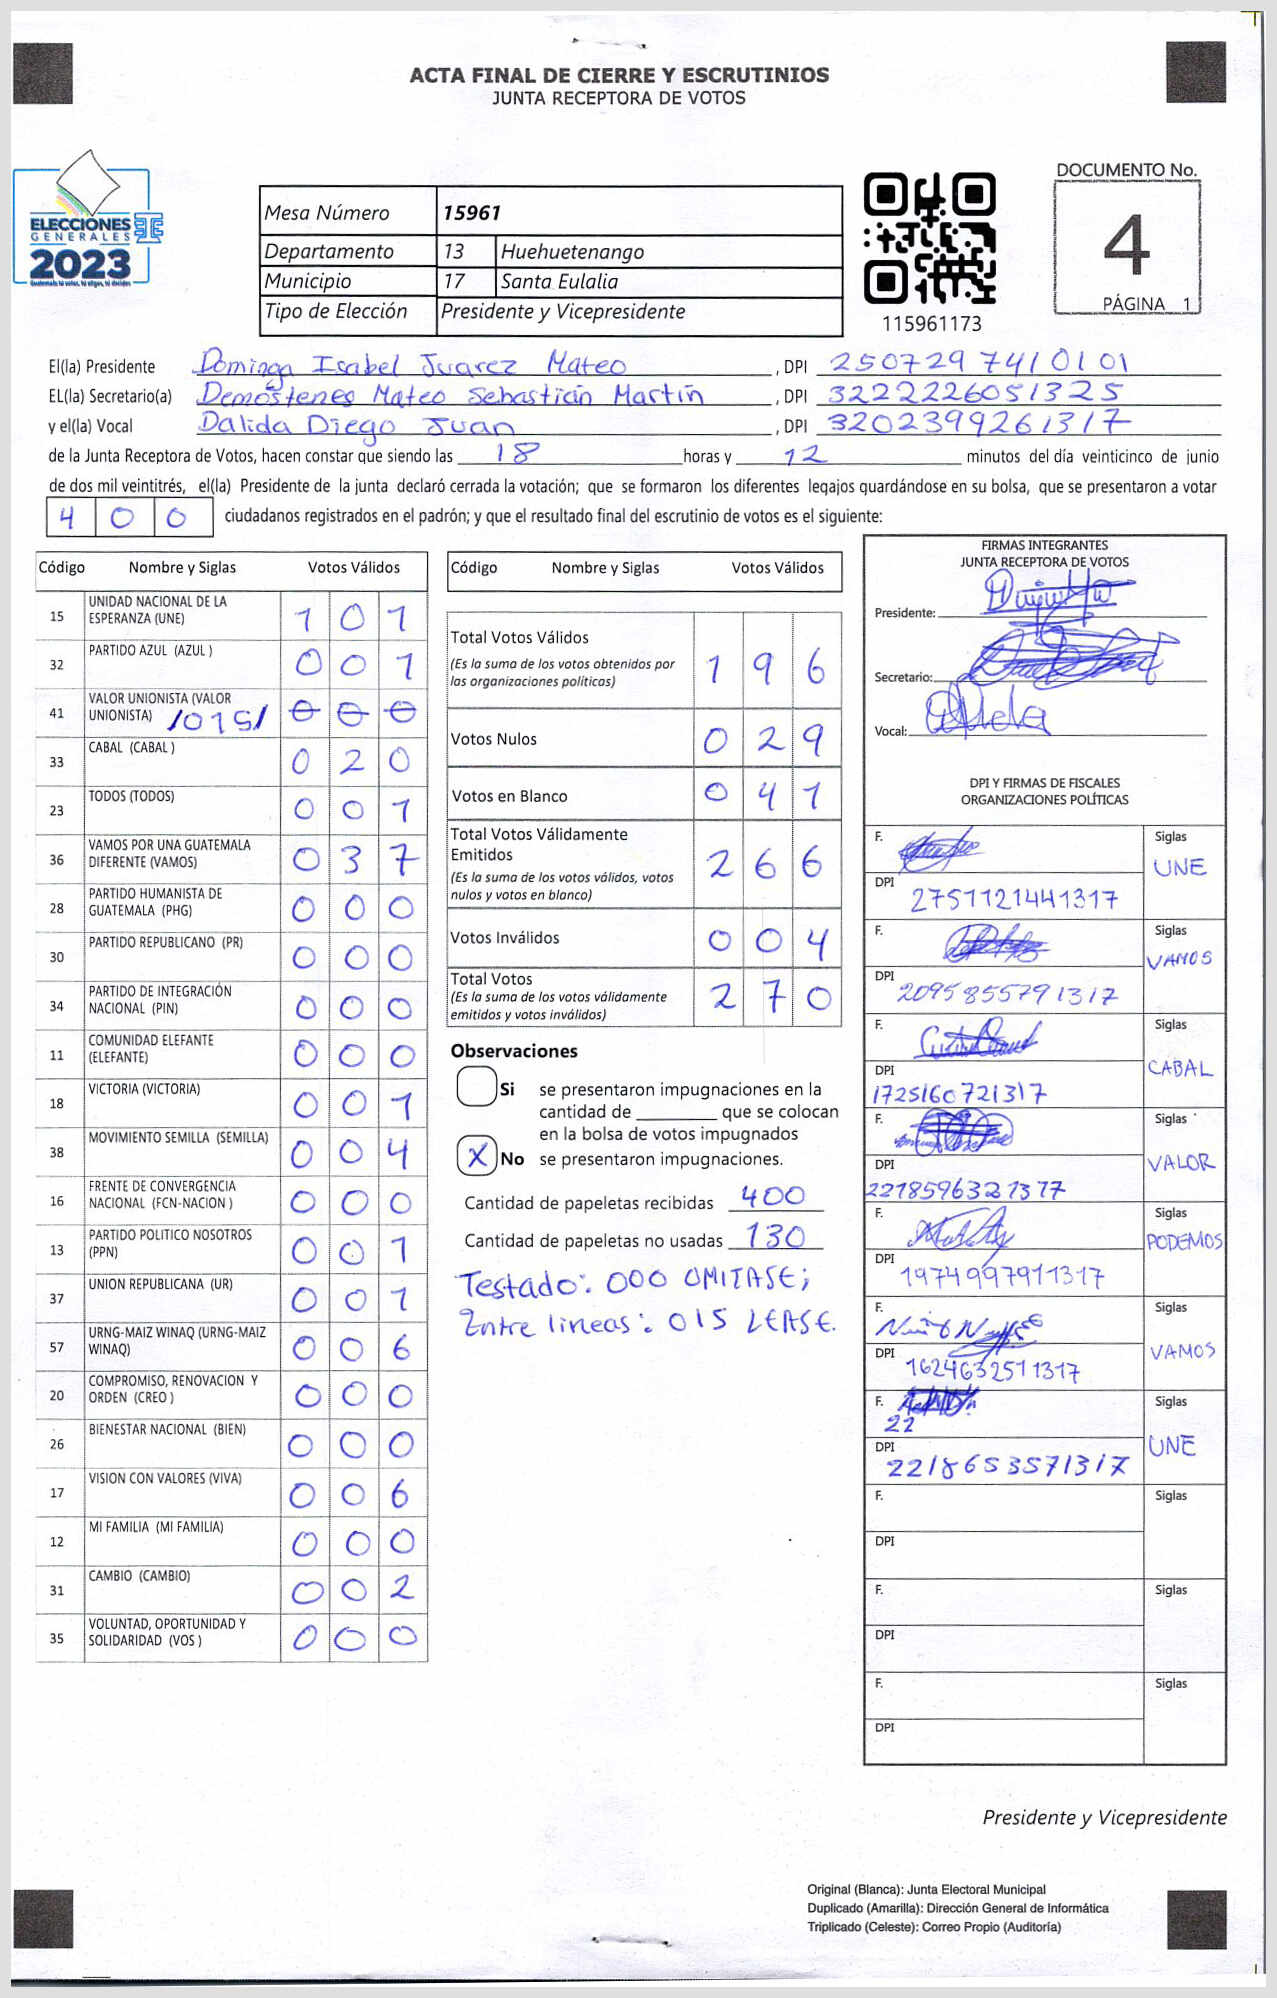 ACTA FINAL DE CIERRE Y ESCRUTINIOS
JUNTA RECEPTORA DE VOTOS
ELECCIONES
GENERALES
2023
Guatemala tú votas, tú eliges, tú decides
Mesa Número 15961
Departamento 13 Huehuetenango
Municipio 17 Santa Eulalia
Tipo de Elección Presidente y Vicepresidente
115961173
DOCUMENTO No.
4
PÁGINA 1
El(la) Presidente Dominga Isabel Juarez Mateo , DPI 2507297410101
EL(la) Secretario(a) Demóstenes Mateo Sebastián Martín , DPI 3222226051325
y el(la) Vocal Dalida Diego Juan , DPI 3202399261317
de la Junta Receptora de Votos, hacen constar que siendo las 18 horas y 12 minutos del día veinticinco de junio
de dos mil veintitrés, el(la) Presidente de la junta declaró cerrada la votación; que se formaron los diferentes legajos guardándose en su bolsa, que se presentaron a votar
4 0 0 ciudadanos registrados en el padrón; y que el resultado final del escrutinio de votos es el siguiente:
Código Nombre y Siglas Votos Válidos
15 UNIDAD NACIONAL DE LA ESPERANZA (UNE) 1 0 1
32 PARTIDO AZUL (AZUL ) 0 0 1
41 VALOR UNIONISTA (VALOR UNIONISTA) /015/ 0 0 0
33 CABAL (CABAL ) 0 2 0
23 TODOS (TODOS) 0 0 1
36 VAMOS POR UNA GUATEMALA DIFERENTE (VAMOS) 0 3 7
28 PARTIDO HUMANISTA DE GUATEMALA (PHG) 0 0 0
30 PARTIDO REPUBLICANO (PR) 0 0 0
34 PARTIDO DE INTEGRACIÓN NACIONAL (PIN) 0 0 0
11 COMUNIDAD ELEFANTE (ELEFANTE) 0 0 0
18 VICTORIA (VICTORIA) 0 0 1
38 MOVIMIENTO SEMILLA (SEMILLA) 0 0 4
16 FRENTE DE CONVERGENCIA NACIONAL (FCN-NACION ) 0 0 0
13 PARTIDO POLITICO NOSOTROS (PPN) 0 0 1
37 UNION REPUBLICANA (UR) 0 0 1
57 URNG-MAIZ WINAQ (URNG-MAIZ WINAQ) 0 0 6
20 COMPROMISO, RENOVACION Y ORDEN (CREO ) 0 0 0
26 BIENESTAR NACIONAL (BIEN) 0 0 0
17 VISION CON VALORES (VIVA) 0 0 6
12 MI FAMILIA (MI FAMILIA) 0 0 0
31 CAMBIO (CAMBIO) 0 0 2
35 VOLUNTAD, OPORTUNIDAD Y SOLIDARIDAD (VOS ) 0 0 0
Código Nombre y Siglas Votos Válidos
Total Votos Válidos 1 9 6
(Es la suma de los votos obtenidos por
las organizaciones políticas)
Votos Nulos 0 2 9
Votos en Blanco 0 4 1
Total Votos Válidamente
Emitidos 2 6 6
(Es la suma de los votos válidos, votos
nulos y votos en blanco)
Votos Inválidos 0 0 4
Total Votos 2 7 0
(Es la suma de los votos válidamente
emitidos y votos inválidos)
Observaciones
Si se presentaron impugnaciones en la
cantidad de ________ que se colocan
en la bolsa de votos impugnados
X No se presentaron impugnaciones.
Cantidad de papeletas recibidas 400
Cantidad de papeletas no usadas 130
Testado: 000 OMITASE;
Entre lineas: 015 LEASE.
FIRMAS INTEGRANTES
JUNTA RECEPTORA DE VOTOS
Presidente:
Secretario:
Vocal:
DPI Y FIRMAS DE FISCALES
ORGANIZACIONES POLÍTICAS
F. Siglas UNE
DPI 2751121441317
F. Siglas VAMOS
DPI 2095855791317
F. Siglas CABAL
DPI 1725160721317
F. Siglas VALOR
DPI 2218596321317
F. Siglas PODEMOS
DPI 1974997911317
F. Siglas VAMOS
DPI 1624632511317
F. 22 Siglas UNE
DPI 2218653571317
F. Siglas
DPI
F. Siglas
DPI
F. Siglas
DPI
Presidente y Vicepresidente
Original (Blanca): Junta Electoral Municipal
Duplicado (Amarilla): Dirección General de Informática
Triplicado (Celeste): Correo Propio (Auditoría)